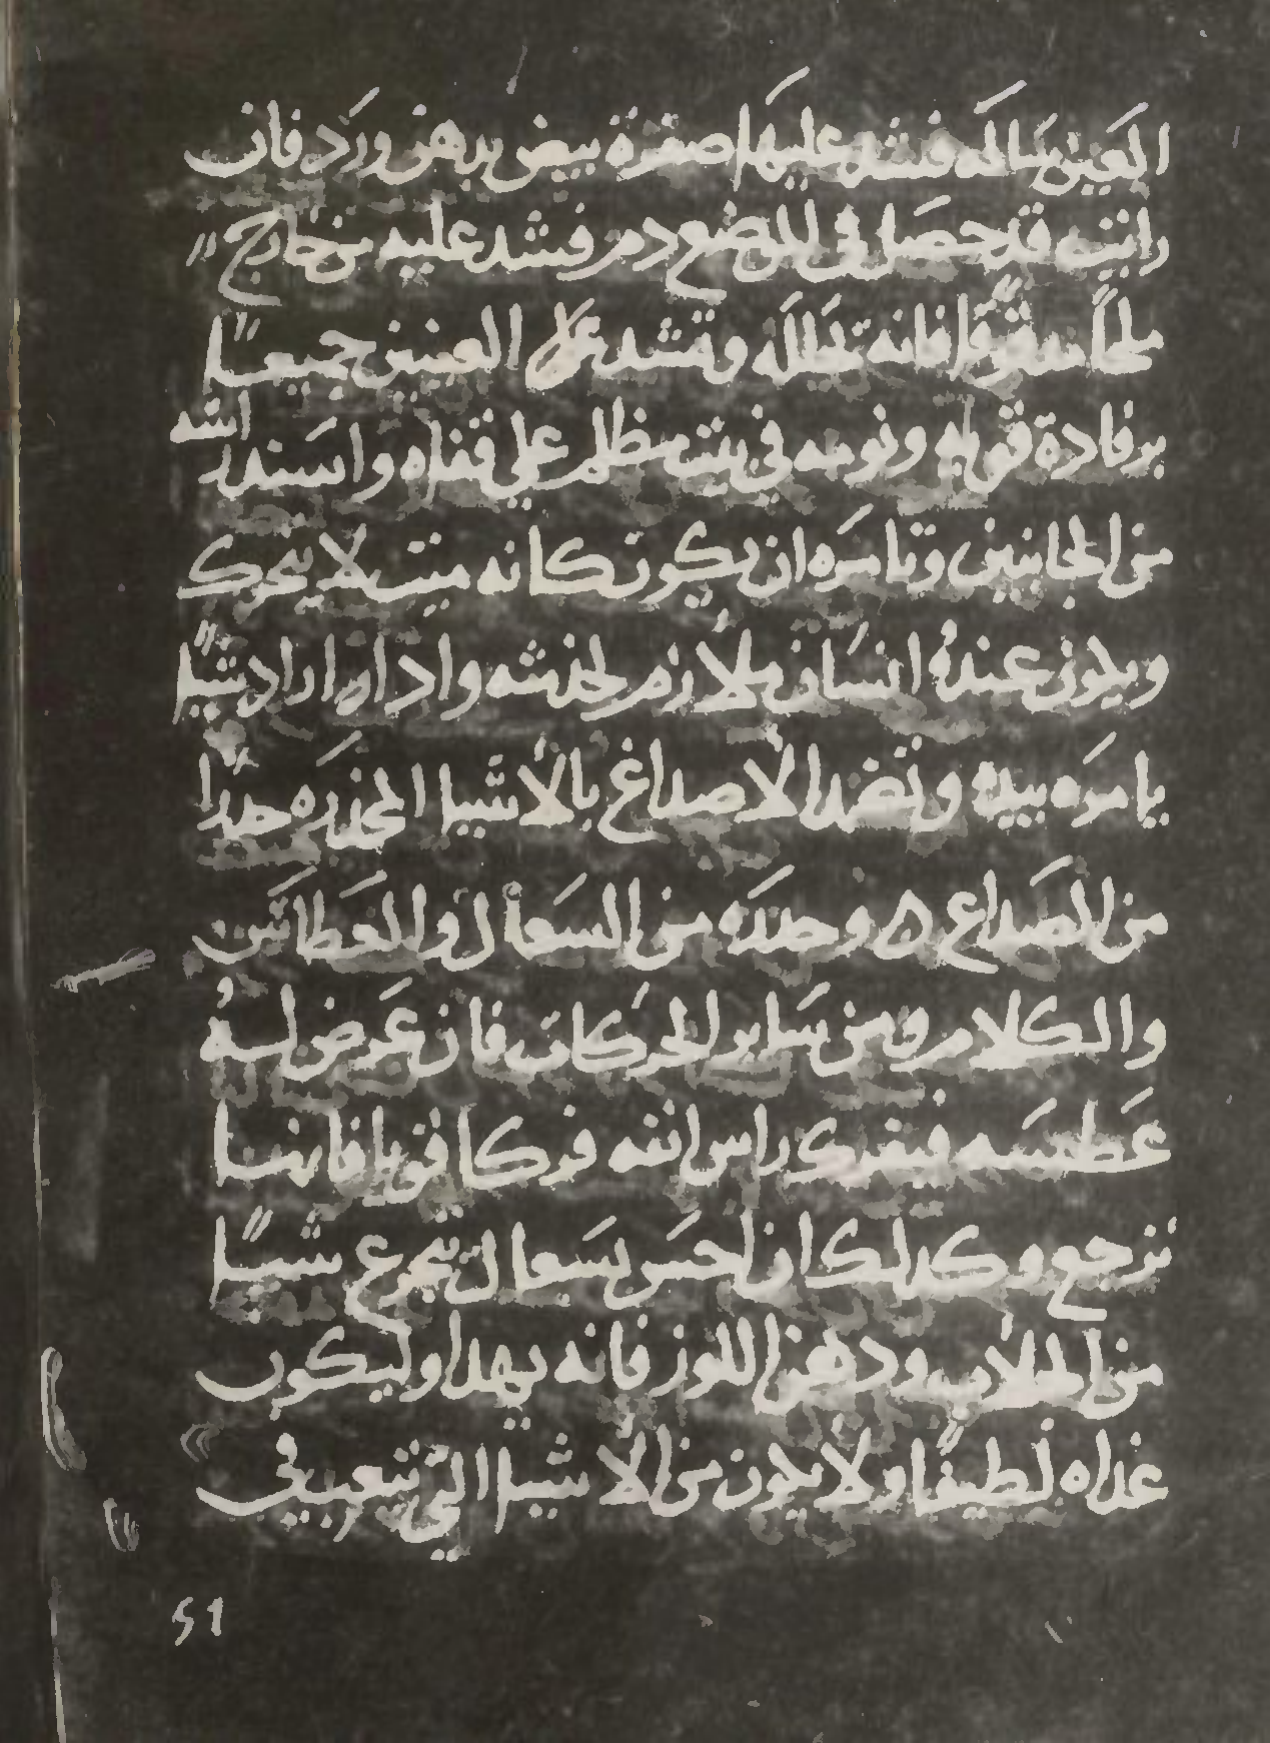 العين سالمه فشد عليها صفرة بيض بدهن ورد فان
رايته قد حصل في الموضع دم فشد عليه من خارج
ملحاً مدقوقاً فانه يحلله وتشد على العينين جميعاً
برفادة قويه ونومه في بيت مظلم على قفاه واسنده
من الجانبين وتامره ان يكون كانه ميت لا يتحرك
ويكون عنده انسان ملازم لخدمته واذا اراد شياً
يامره بيده وتضمد الاصداغ بالأشيا المخدره حذراً
من الصداع ه وحذره من السعال والعطاس
والكلام ومن ساير الحركات فان عرض له
عطسه فيفرك راس انفه فركا قويا فانها
ترجع وكذلك ان احس بسعال يتجرع شيًا
من الجلاب ودهن اللوز فانه يهدا وليكون
غذاه لطيفًا ولا يكون من الأشيا التي تتعب في
51